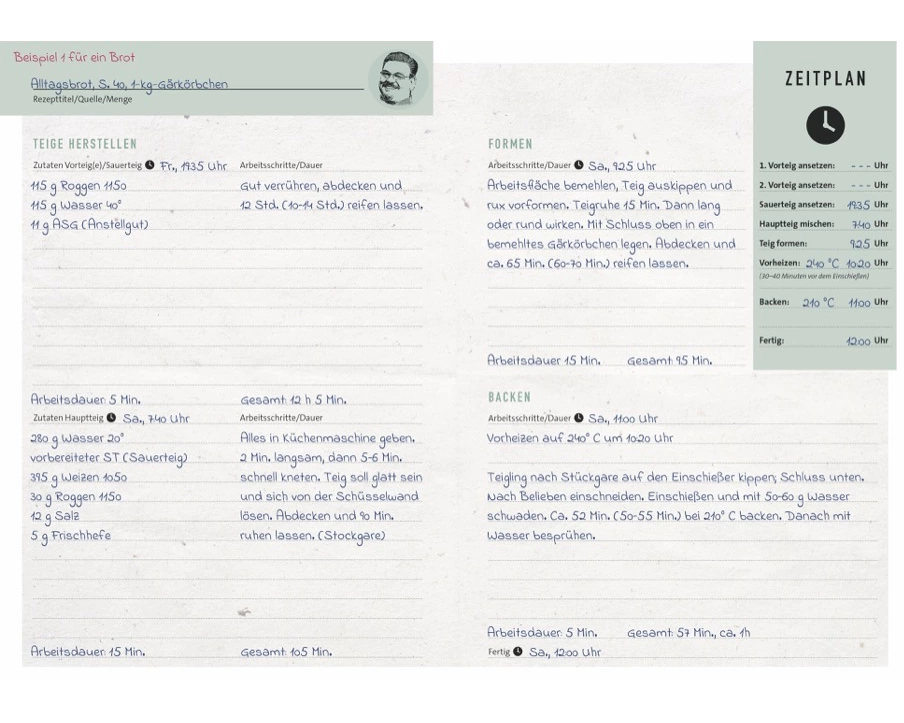 Beispiel 1 für ein Brot
Alltagsbrot, S. 40, 1-kg-Gärkörbchen
Rezepttitel/Quelle/Menge
TEIGE HERSTELLEN
Zutaten Vorteig(e)/Sauerteig Fr., 1935 Uhr Arbeitsschritte/Dauer
115 g Roggen 1150 Gut verrühren, abdecken und
115 g Wasser 40° 12 Std. (10-14 Std.) reifen lassen.
11 g ASG (Anstellgut)
Arbeitsdauer: 5 Min. Gesamt: 12 h 5 Min.
Zutaten Hauptteig Sa., 740 Uhr Arbeitsschritte/Dauer
280 g Wasser 20° Alles in Küchenmaschine geben.
vorbereiteter ST (Sauerteig) 2 Min. langsam, dann 5-6 Min.
395 g Weizen 1050 schnell kneten. Teig soll glatt sein
30 g Roggen 1150 und sich von der Schüsselwand
12 g Salz lösen. Abdecken und 90 Min.
5 g Frischhefe ruhen lassen. (Stockgare)
Arbeitsdauer: 15 Min. Gesamt: 105 Min.
FORMEN
Arbeitsschritte/Dauer Sa., 925 Uhr
Arbeitsfläche bemehlen, Teig auskippen und
rux vorformen. Teigruhe 15 Min. Dann lang
oder rund wirken. Mit Schluss oben in ein
bemehltes Gärkörbchen legen. Abdecken und
ca. 65 Min. (60-70 Min.) reifen lassen.
Arbeitsdauer: 15 Min. Gesamt: 95 Min.
BACKEN
Arbeitsschritte/Dauer Sa., 1100 Uhr
Vorheizen auf 240° C um 1020 Uhr
Teigling nach Stückgare auf den Einschießer kippen; Schluss unten.
Nach Belieben einschneiden. Einschießen und mit 50-60 g Wasser
schwaden. Ca. 52 Min. (50-55 Min.) bei 210° C backen. Danach mit
Wasser besprühen.
Arbeitsdauer: 5 Min. Gesamt: 57 Min., ca. 1h
Fertig Sa., 1200 Uhr
ZEITPLAN
1. Vorteig ansetzen: - - - Uhr
2. Vorteig ansetzen: - - - Uhr
Sauerteig ansetzen: 1935 Uhr
Hauptteig mischen: 740 Uhr
Teig formen: 925 Uhr
Vorheizen: 240 °C 1020 Uhr
(30–40 Minuten vor dem Einschießen)
Backen: 210 °C 1100 Uhr
Fertig: 1200 Uhr